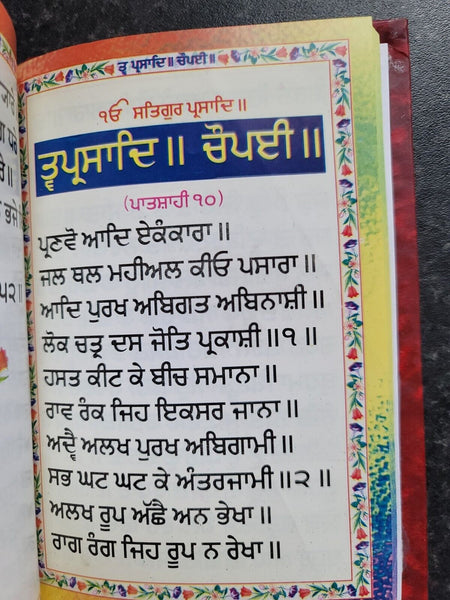 ਤ੍ਵ ਪ੍ਰਸਾਦਿ॥ ਚੌਪਈ॥
ੴ ਸਤਿਗੁਰ ਪ੍ਰਸਾਦਿ॥
ਤ੍ਵਪ੍ਰਸਾਦਿ॥ ਚੌਪਈ॥
(ਪਾਤਸ਼ਾਹੀ ੧੦)
ਪ੍ਰਣਵੋ ਆਦਿ ਏਕੰਕਾਰਾ॥
ਜਲ ਥਲ ਮਹੀਅਲ ਕੀਓ ਪਸਾਰਾ॥
ਆਦਿ ਪੁਰਖ ਅਬਿਗਤ ਅਬਿਨਾਸ਼ੀ॥
ਲੋਕ ਚਤ੍ਰ ਦਸ ਜੋਤਿ ਪ੍ਰਕਾਸ਼ੀ॥੧॥
ਹਸਤ ਕੀਟ ਕੇ ਬੀਚ ਸਮਾਨਾ॥
ਰਾਵ ਰੰਕ ਜਿਹ ਇਕਸਰ ਜਾਨਾ॥
ਅਦ੍ਵੈ ਅਲਖ ਪੁਰਖ ਅਬਿਗਾਮੀ॥
ਸਭ ਘਟ ਘਟ ਕੇ ਅੰਤਰਜਾਮੀ॥੨॥
ਅਲਖ ਰੂਪ ਅੱਛੈ ਅਨ ਭੇਖਾ॥
ਰਾਗ ਰੰਗ ਜਿਹ ਰੂਪ ਨ ਰੇਖਾ॥